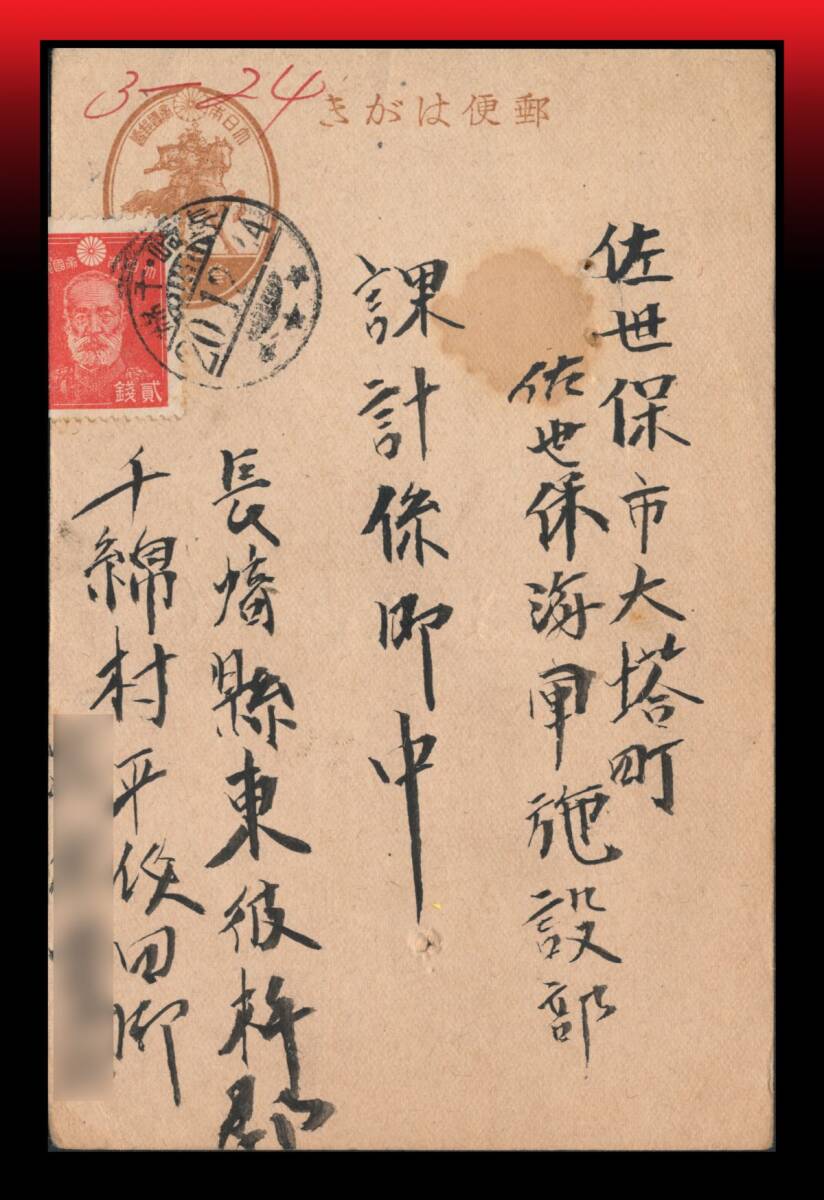 3-24
郵便はがき
大日本帝國郵便
大日本帝國郵便
貳錢
20.12.14
佐世保市大塔町
佐世保海軍施設部
課計係御中
長﨑縣東彼杵郡
千綿村平似田郷